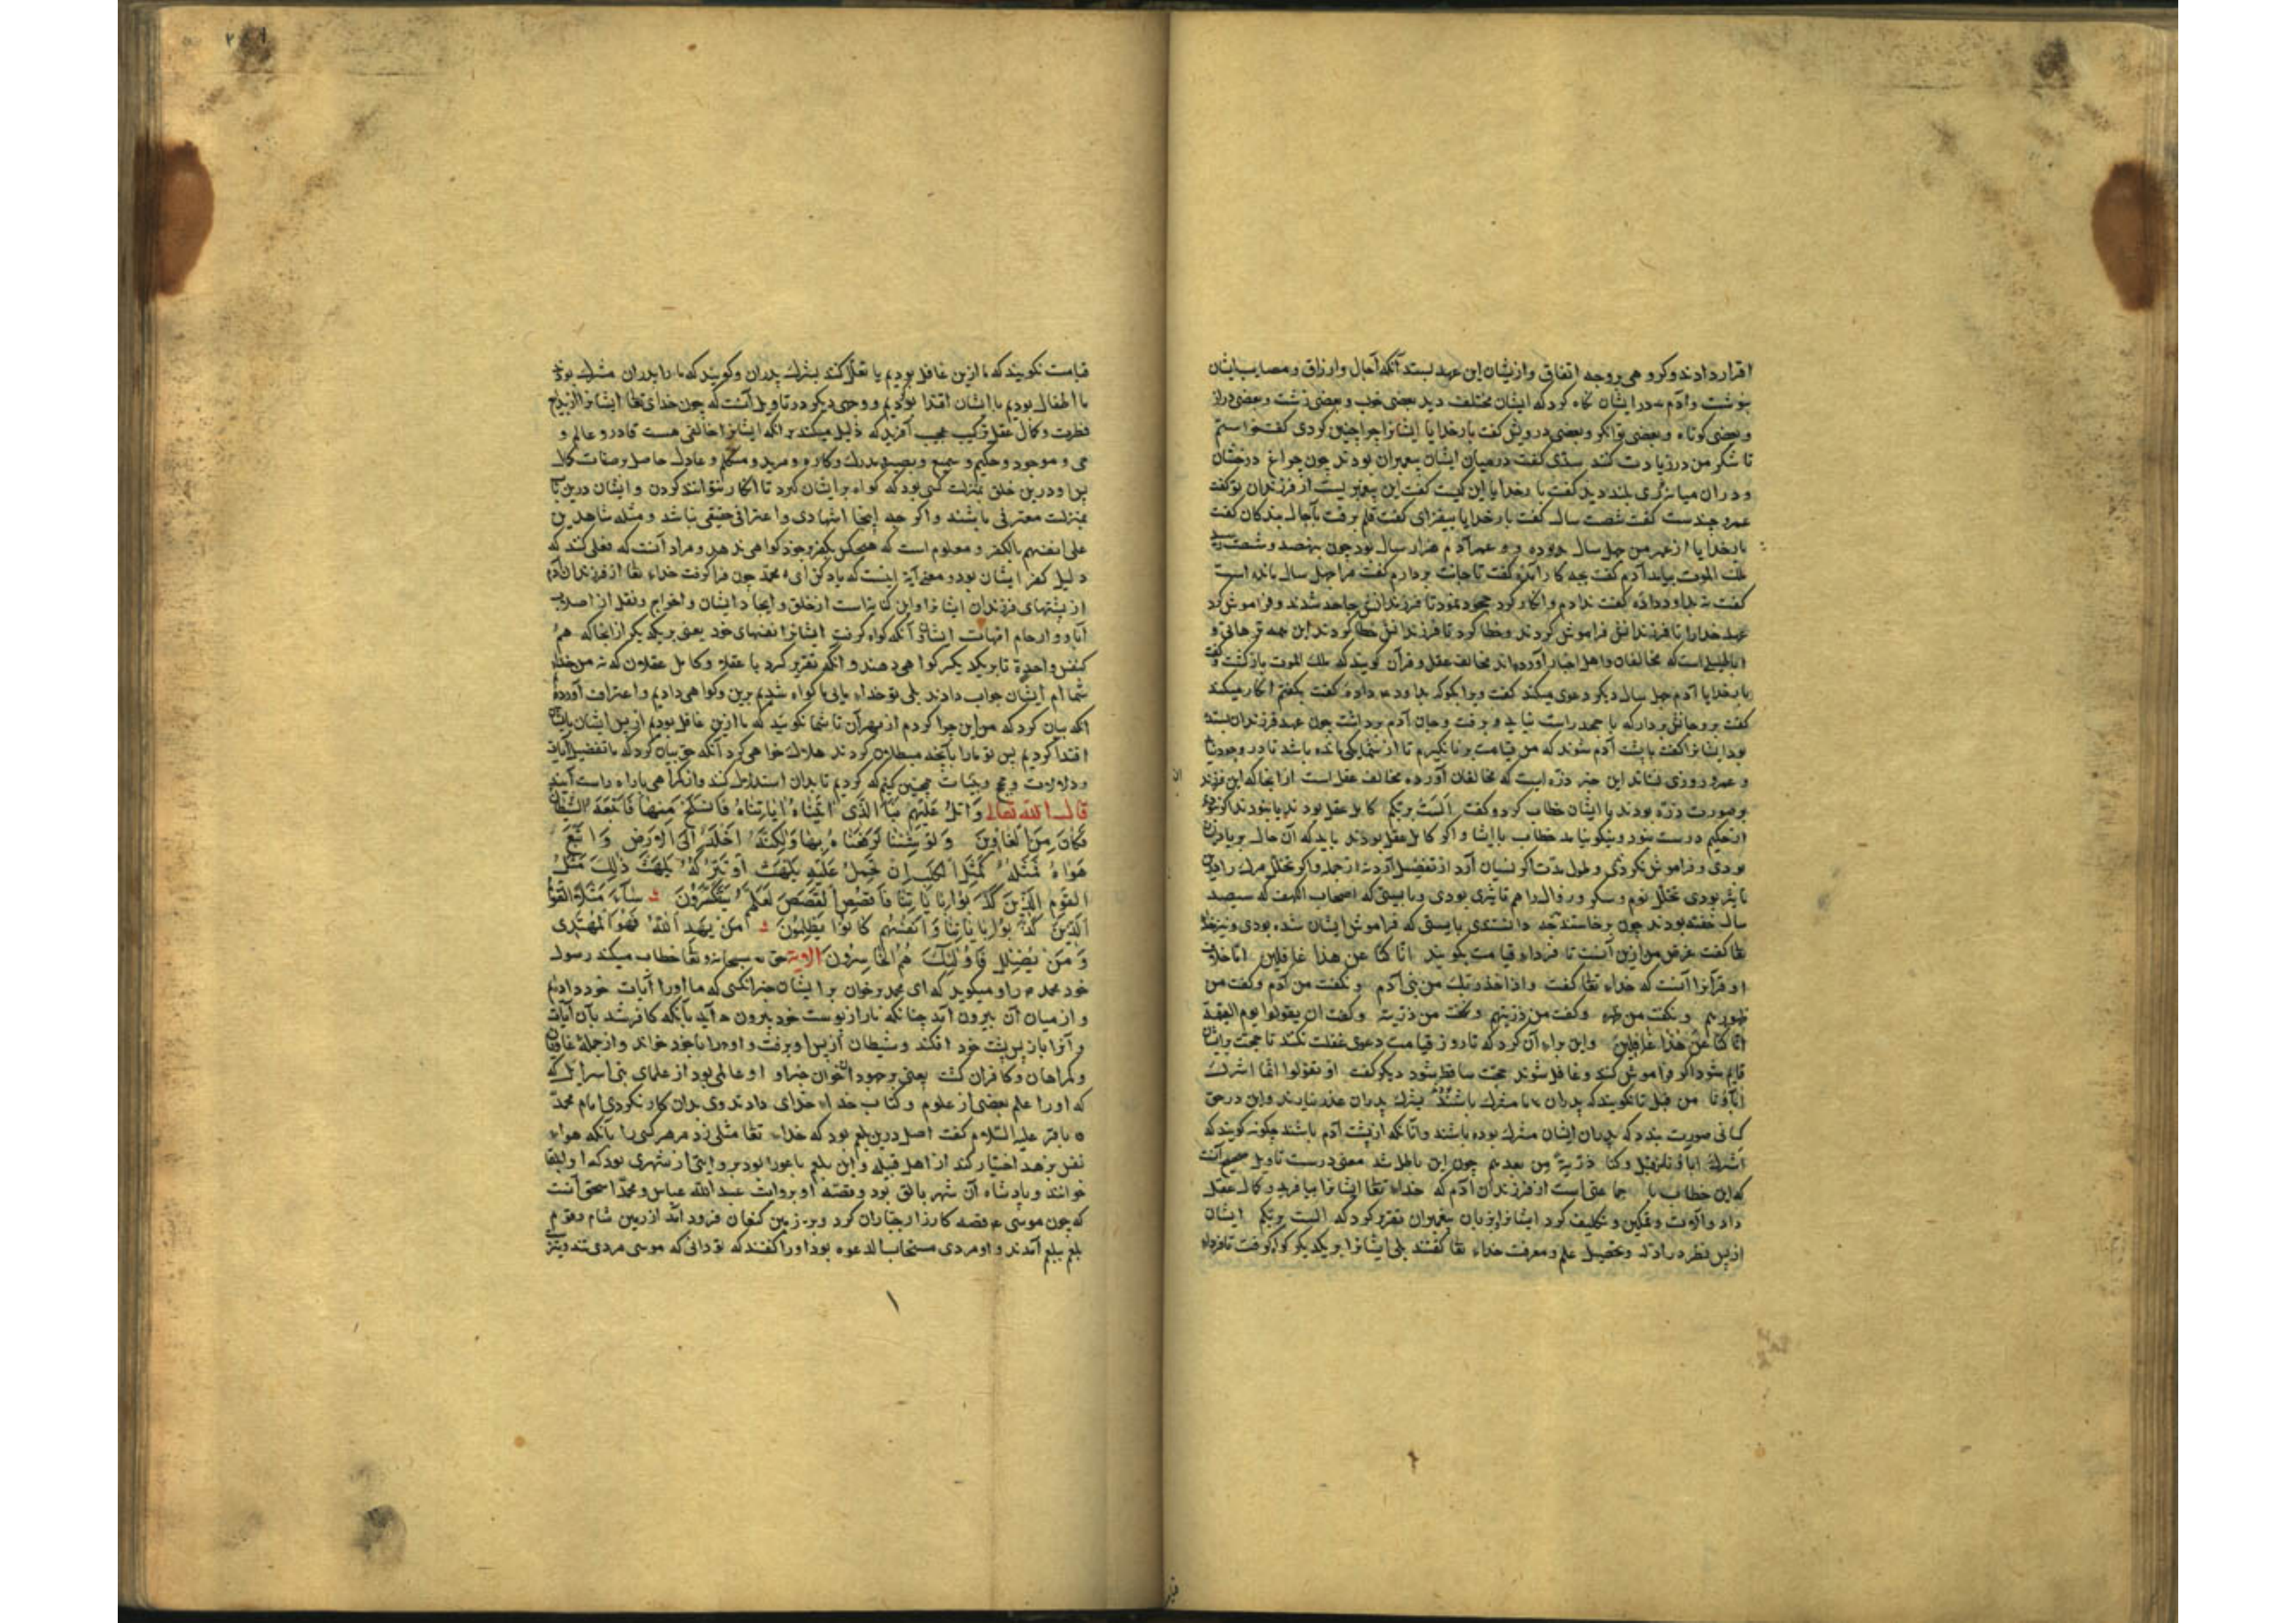 اقرار دادند و کروهی بر وجه اتفاق و ازیشان این عهد بستد آنکه آجال و ارزاق و مصایب ایشان
بنوشت و آدم در ایشان نکاه کرد که ایشان مختلف دید بعضی خوب و بعضی زشت و بعضی دراز
و بعضی کوتاه و بعضی توانکر و بعضی درویش کفت بار خدایا ایشانرا چرا چنین کردی کفت خواستم
تا شکر من در زیادت کنند سدّی کفت در میان ایشان پیغمبران بودند چون چراغ درخشان
و در آن میانه نوری بلند دید کفت بار خدایا این کیست کفت این پیغمبریست از فرزندان تو کفت
عمرو چندست کفت شصت سال کفت بار خدایا بیفزای کفت قلم برفت بآجال بندکان کفت
بار خدایا از عمر من چهل سال بدو ده و عمر آدم هزار سال بود چون بنهصد و شصت رسید
ملک الموت بیامد آدم کفت بچه کار آمدهٔ کفت تا جانت بردارم کفت مرا چهل سال مانده است
کفت نه بداود دادهٔ کفت ندادم و انکار کرد جحود نمود تا فرزندانش جاحد شدند و فراموش کرد
عهد خدا را تا فرزندانش فراموش کردند و خطا کرد تا فرزندانش خطا کردند این همه ترهات و
اباطیل است که مخالفان و اهل اخبار آورده‌اند مخالف عقل و قرآن کویند که ملک الموت باز کشت و کفت
بار خدایا آدم چهل سال دیکر دعوی میکند کفت ویرا بکو که بداود دادهٔ کفت بکفتم انکار میکند
کفت برو جانش بردار که با جحد راست نیاید و برفت و جان آدم برداشت چون عهد فرزندان بستده
بود ایشانرا کفت با پشت آدم شوند که من قیامت بر نانکیزم تا از شما یکی مانده باشد تا در وجود نیاید
و عمر و روزی نستاند این خبر ذرّه است که مخالفان آورده مخالف عقل است از آنجا که این فرزندان
بر صورت ذرّه بودند با ایشان خطاب کرد و کفت الست بربکم کامل عقل بودند یا نبودند اکر نبودند
از حکیم درست نبود و نیکو نیامد خطاب با ایشان و اکر کامل عقل بودند باید که آن حال بر یاد ایشان
بودی و فراموش نکردندی و طول مدت اکر نسیان آرد از تفصیل آرد نه از جمله و اکر تخلل مرک را درین
تاثیر بودی تخلل نوم و سکر و زوال را هم تاثیر بودی و بایستی که اصحاب الکهف که سیصد
سال خفته بودند چون برخاستند بایستی که فراموش ایشان شده بودی و نیز خدا
تعا کفت غرض من ازین آنست تا فردای قیامت نکویند انا کنا عن هذا غافلین امّا خلاف
او قرآنرا آنست که خداء تعا کفت و اذ اخذ ربک من بنی آدم و نکفت من آدم و کفت من
ظهورهم و نکفت من ظهره و کفت من ذریتهم و نکفت من ذریته و کفت ان یقولوا یوم القیمة
انا کنا عن هذا غافلین و این براء آن کرد که تا روز قیامت دعوی غفلت نکنند تا حجت بر ایشان
قایم شود اکر فراموش کنند و غافل شوند حجت ساقط شود دیکر کفت او تقولوا انما اشرک
آباؤنا من قبل تا نکویند که پدران ما مشرک باشند بشرک پدران عذر نیارند و این در حق
کسانی صورت بندد که پدران ایشان مشرک بوده باشند و آنانکه از پشت آدم باشند چکونه کویند که
اشرک آباؤنا من قبل و کنا ذریة من بعدهم چون این باطل شد معنی درست تاویل صحیح آنست
که این خطاب با جماعتی است از فرزندان آدم که خداء تعا ایشانرا بیافرید و کمال عقل
داد و آلات و تمکین و تکلیف کرد ایشانرا بزبان پیغمبران تقریر کرد که الست بربکم ایشان
از پس نظر در ادله و تحصیل علم و معرفت خداء تعا کفتند بلی ایشانرا بر یکدیکر کواه کرفت تا فرداء
قیامت نکویند که ما ازین غافل بودیم یا تعلّل کنند بشرک پدران و کویند که ما را پدران مشرک بودند
ما اطفال بودیم با ایشان اقتدا بودیم و وجهی دیکر در تاویل آنست که چون خدای تعا ایشانرا از بدایع
فطرت و کمال عقل ترکیب عجیب آفرید که دلیل میکند بر آنکه ایشانرا خالقی هست قادر و عالم و
حی و موجود و حکیم و سمیع و بصیر و مدرک و کاره و مرید و متکلم و عادل حاصل بر صفات کمال
پس او درین خلق بمنزلت کسی بود که کواه بر ایشان کیرد تا انکار نتوانند کردن و ایشان درین باب
بمنزلت معترفی باشند و اکر چه اینجا اشهادی و اعترافی حقیقی نباشد و مثله شاهدین
علی انفسهم بالکفر و معلوم است که هیچکس بکفر خود کواهی ندهد و مراد آنست که فعلی کند که
دلیل کفر ایشان بود و معنی آیة اینست که یاد کن ای محمد چون فرا کرفت خداء تعا از فرزندان آدم
از پشتهای فرزندان ایشانرا و این کنایتاست از خلق و ایجاد ایشان و اخراج و نقل از اصلاب
آباء و ارحام امهات ایشان آنکه کواه کرفت ایشانرا بنفسهای خود یعنی بر یکدیکر از آنجا که همه
کنفس واحدة تا بر یکدیکر کواهی دهند و آنکه تقریر کرد با عقلا و کامل عقلان که نه من خداء
شما ام ایشان جواب دادند بلی تو خداء مایی ما کواه شدیم برین و کواهی دادیم و اعتراف آوردیم
آنکه بیان کرد که من این چرا کردم از بهر آن تا شما نکویید که ما ازین غافل بودیم از پس ایشان بایشان
اقتدا کردیم پس تو ما را بآنچه مبطلان کردند هلاک خواهی کرد آنکه حق بیان کرد که ما تفضیل آیات
و دلالات و حجج و بینات چنین کنیم که کردیم تا بدان استدلال کنند و از کمراهی با راه راست آیند
قال الله تعالی وَاتْلُ عَلَیْهِمْ نَبَأَ الَّذِی آتَیْنَاهُ آیَاتِنَاهُ فَانْسَلَخَ مِنْهَا فَأَتْبَعَهُ الشَّیْطَانُ
فَکَانَ مِنَ الْغَاوِینَ وَلَوْ شِئْنَا لَرَفَعْنَاهُ بِهَا وَلَکِنَّهُ أَخْلَدَ إِلَی الْأَرْضِ وَاتَّبَعَ
هَوَاهُ فَمَثَلُهُ کَمَثَلِ الْکَلْبِ إِنْ تَحْمِلْ عَلَیْهِ یَلْهَثْ أَوْ تَتْرُکْهُ یَلْهَثْ ذَلِکَ مَثَلُ
الْقَوْمِ الَّذِینَ کَذَّبُوا بِآیَاتِنَا فَاقْصُصِ الْقَصَصَ لَعَلَّهُمْ یَتَفَکَّرُونَ سَاءَ مَثَلًا الْقَوْمُ
الَّذِینَ کَذَّبُوا بِآیَاتِنَا وَأَنْفُسَهُمْ کَانُوا یَظْلِمُونَ مَنْ یَهْدِ اللَّهُ فَهُوَ الْمُهْتَدِی
وَمَنْ یُضْلِلْ فَأُولَئِکَ هُمُ الْخَاسِرُونَ الآیة حق سبحانه و تعا خطاب میکند رسول
خود محمد را و میکوید که ای محمد برخوان بر ایشان خبر آنکسی که ما او را آیات خود دادیم
و از میان آن بیرون آمد چنانکه مار از پوست خود بیرون آید بآنکه کافر شد بآن آیات
و آنرا باز پس پشت خود افکند و شیطان از پس او برفت و او را با خود خواند و از جمله غاویان
و کمراهان و کافران کشت یعنی بر جهودان خوان خبر او و او عالمی بود از علمای بنی اسرائیل که
که او را علم بعضی از علوم و کتاب خداء خدای دادند وی بدان کار نکردی امام محمد
باقر علیه السّلام کفت اصل درین بلعم بود که خداء تعا مثلی زد مر هر کسی را بآنکه هواء
نفس بر هدی اختیار کند از اهل قبله و این بلعم باعورا بود بروایتی از شهری بود که او را بلقا
خوانند و پادشاه آن شهر بالق بود و قصّه او بروایت عبد الله عباس و محمّد اسحق آنست
که چون موسی ع قصد کارزار جبّاران کرد و بر زمین کنعان فرود آمد از زمین شام قوم
بلعم ببلعم آمدند و او مردی مستجاب الدعوه بود او را کفتند که تو دانی که موسی مردی تند و تیز